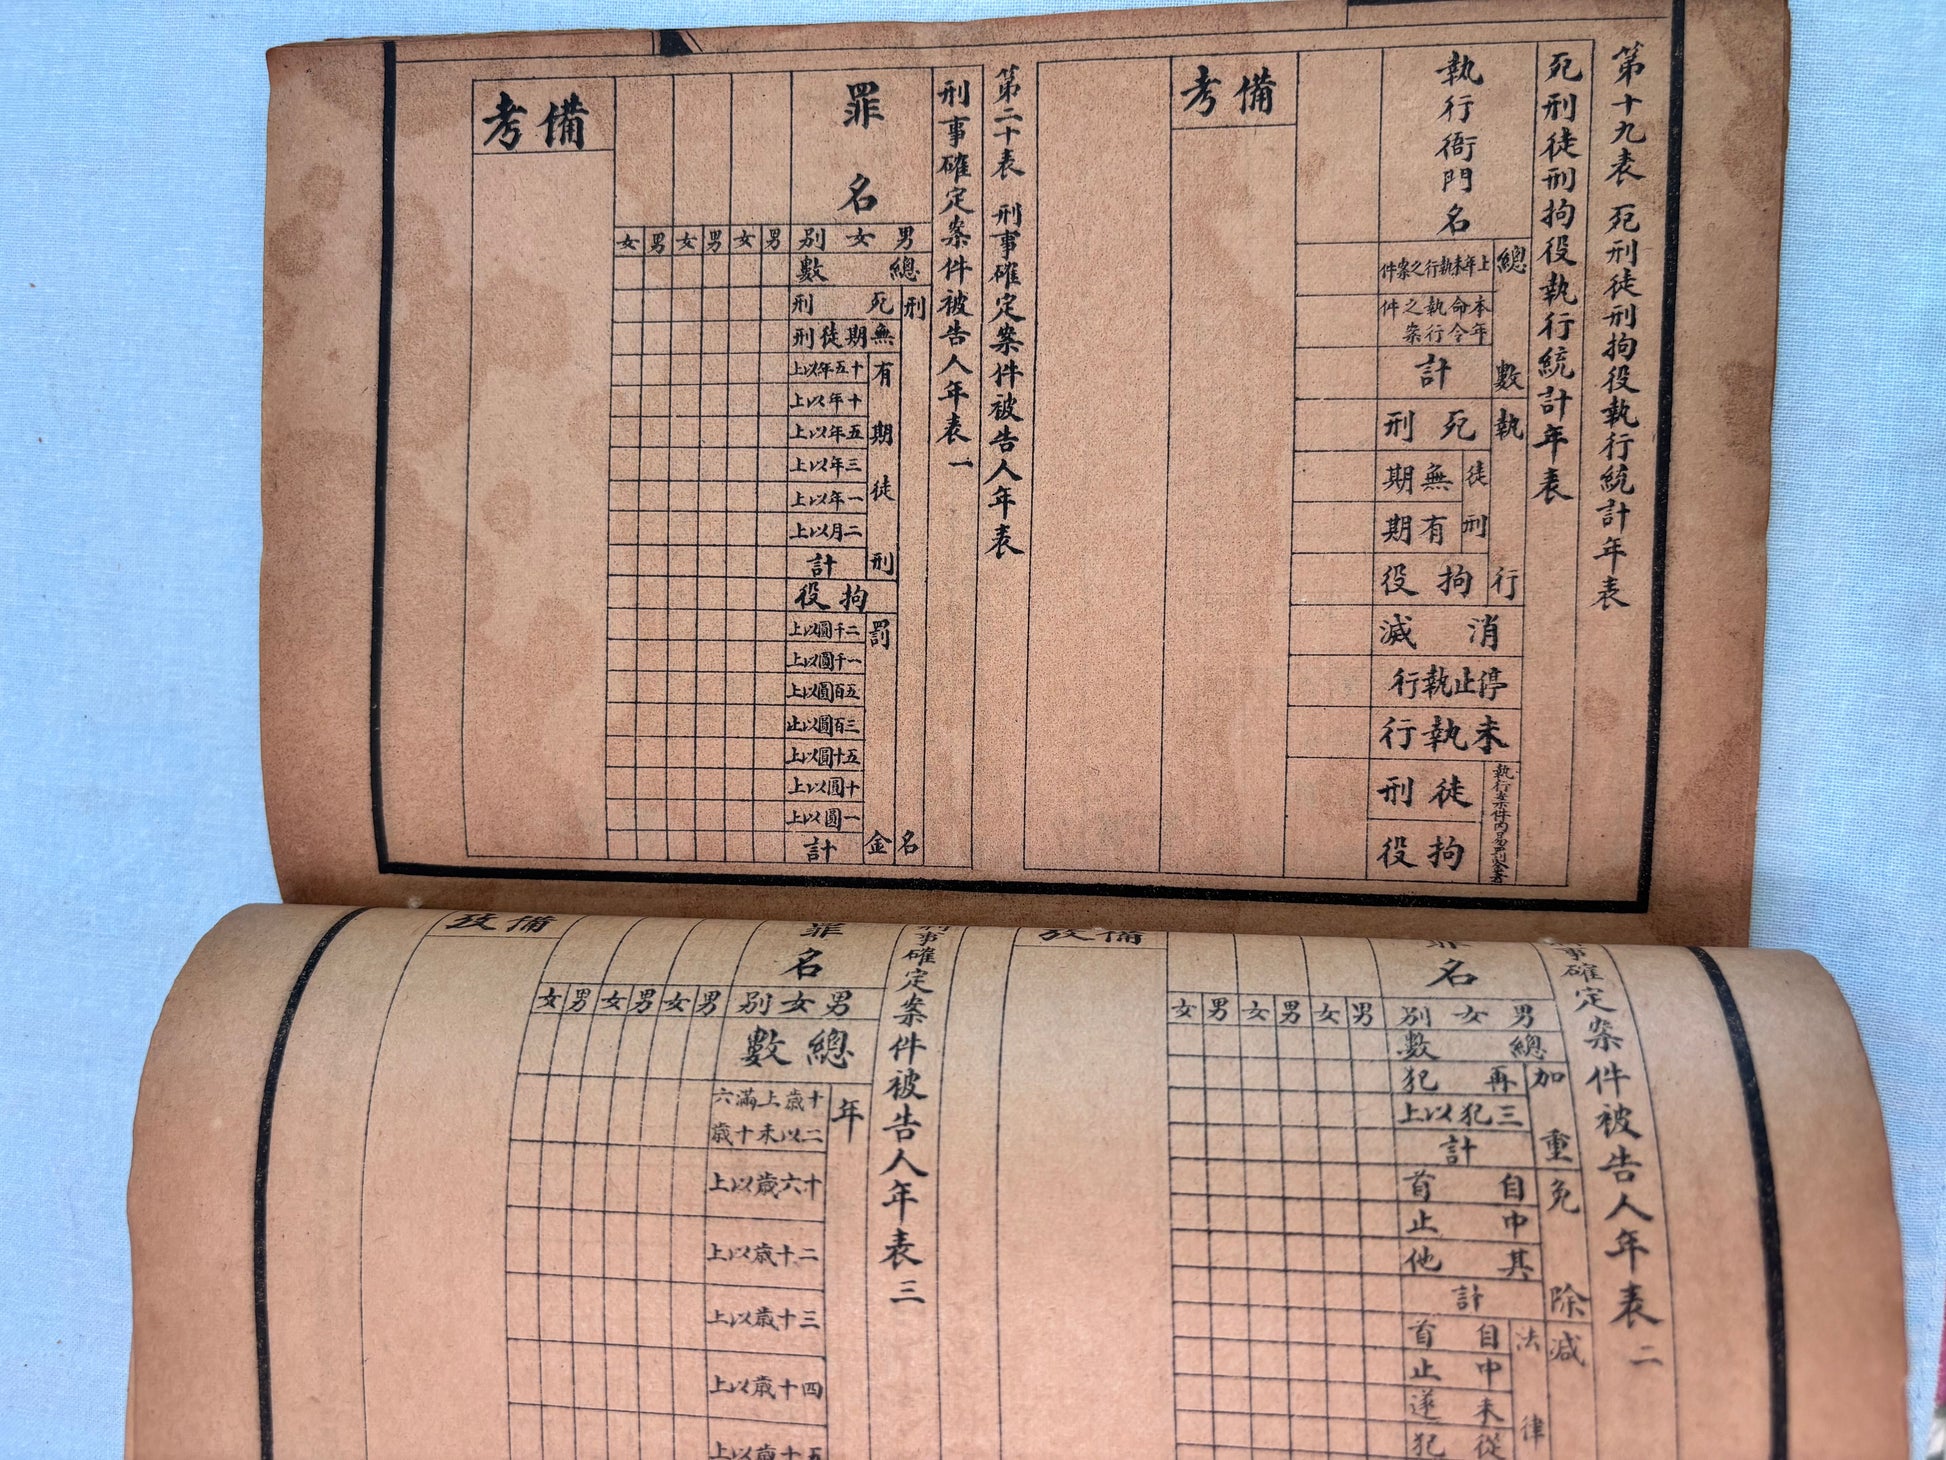 第十九表 死刑徒刑拘役執行統計年表
死刑徒刑拘役執行統計年表
執行衙門名
總數
上年未執行之案件
本年命令執行之案件
計
執行
死刑
徒刑
無期
有期
拘役
消滅
停止執行
未執行
執行案件內易罰金者
徒刑
拘役
備考
第二十表 刑事確定案件被告人年表
刑事確定案件被告人年表一
罪名
男女別
男
女
男
女
男
女
總數
刑名
死刑
無期徒刑
有期徒刑
十五年以上
十年以上
五年以上
三年以上
一年以上
二月以上
計
拘役
罰金
二千圓以上
一千圓以上
五百圓以上
三百圓以止
五十圓以上
十圓以上
一圓以上
計
備考
事確定案件被告人年表二
名
男女別
男
女
男
女
男
女
總數
加重
再犯
三犯以上
計
免除
自首
中止
其他
計
減
法律
自首
中止
未遂
從犯
備攷
刑事確定案件被告人年表三
罪名
男女別
男
女
男
女
男
女
總數
年
十二歲以上未滿十六歲
十六歲以上
二十歲以上
三十歲以上
四十歲以上
五十歲以上
備攷